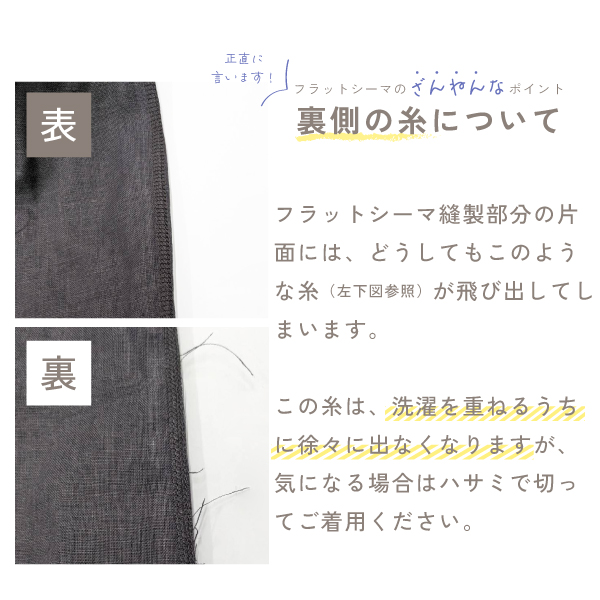 正直に
言います！
フラットシーマの ざんねんな ポイント
裏側の糸について
表
裏
フラットシーマ縫製部分の片
面には、どうしてもこのよう
な糸（左下図参照）が飛び出してし
まいます。
この糸は、洗濯を重ねるうち
に徐々に出なくなりますが、
気になる場合はハサミで切っ
てご着用ください。